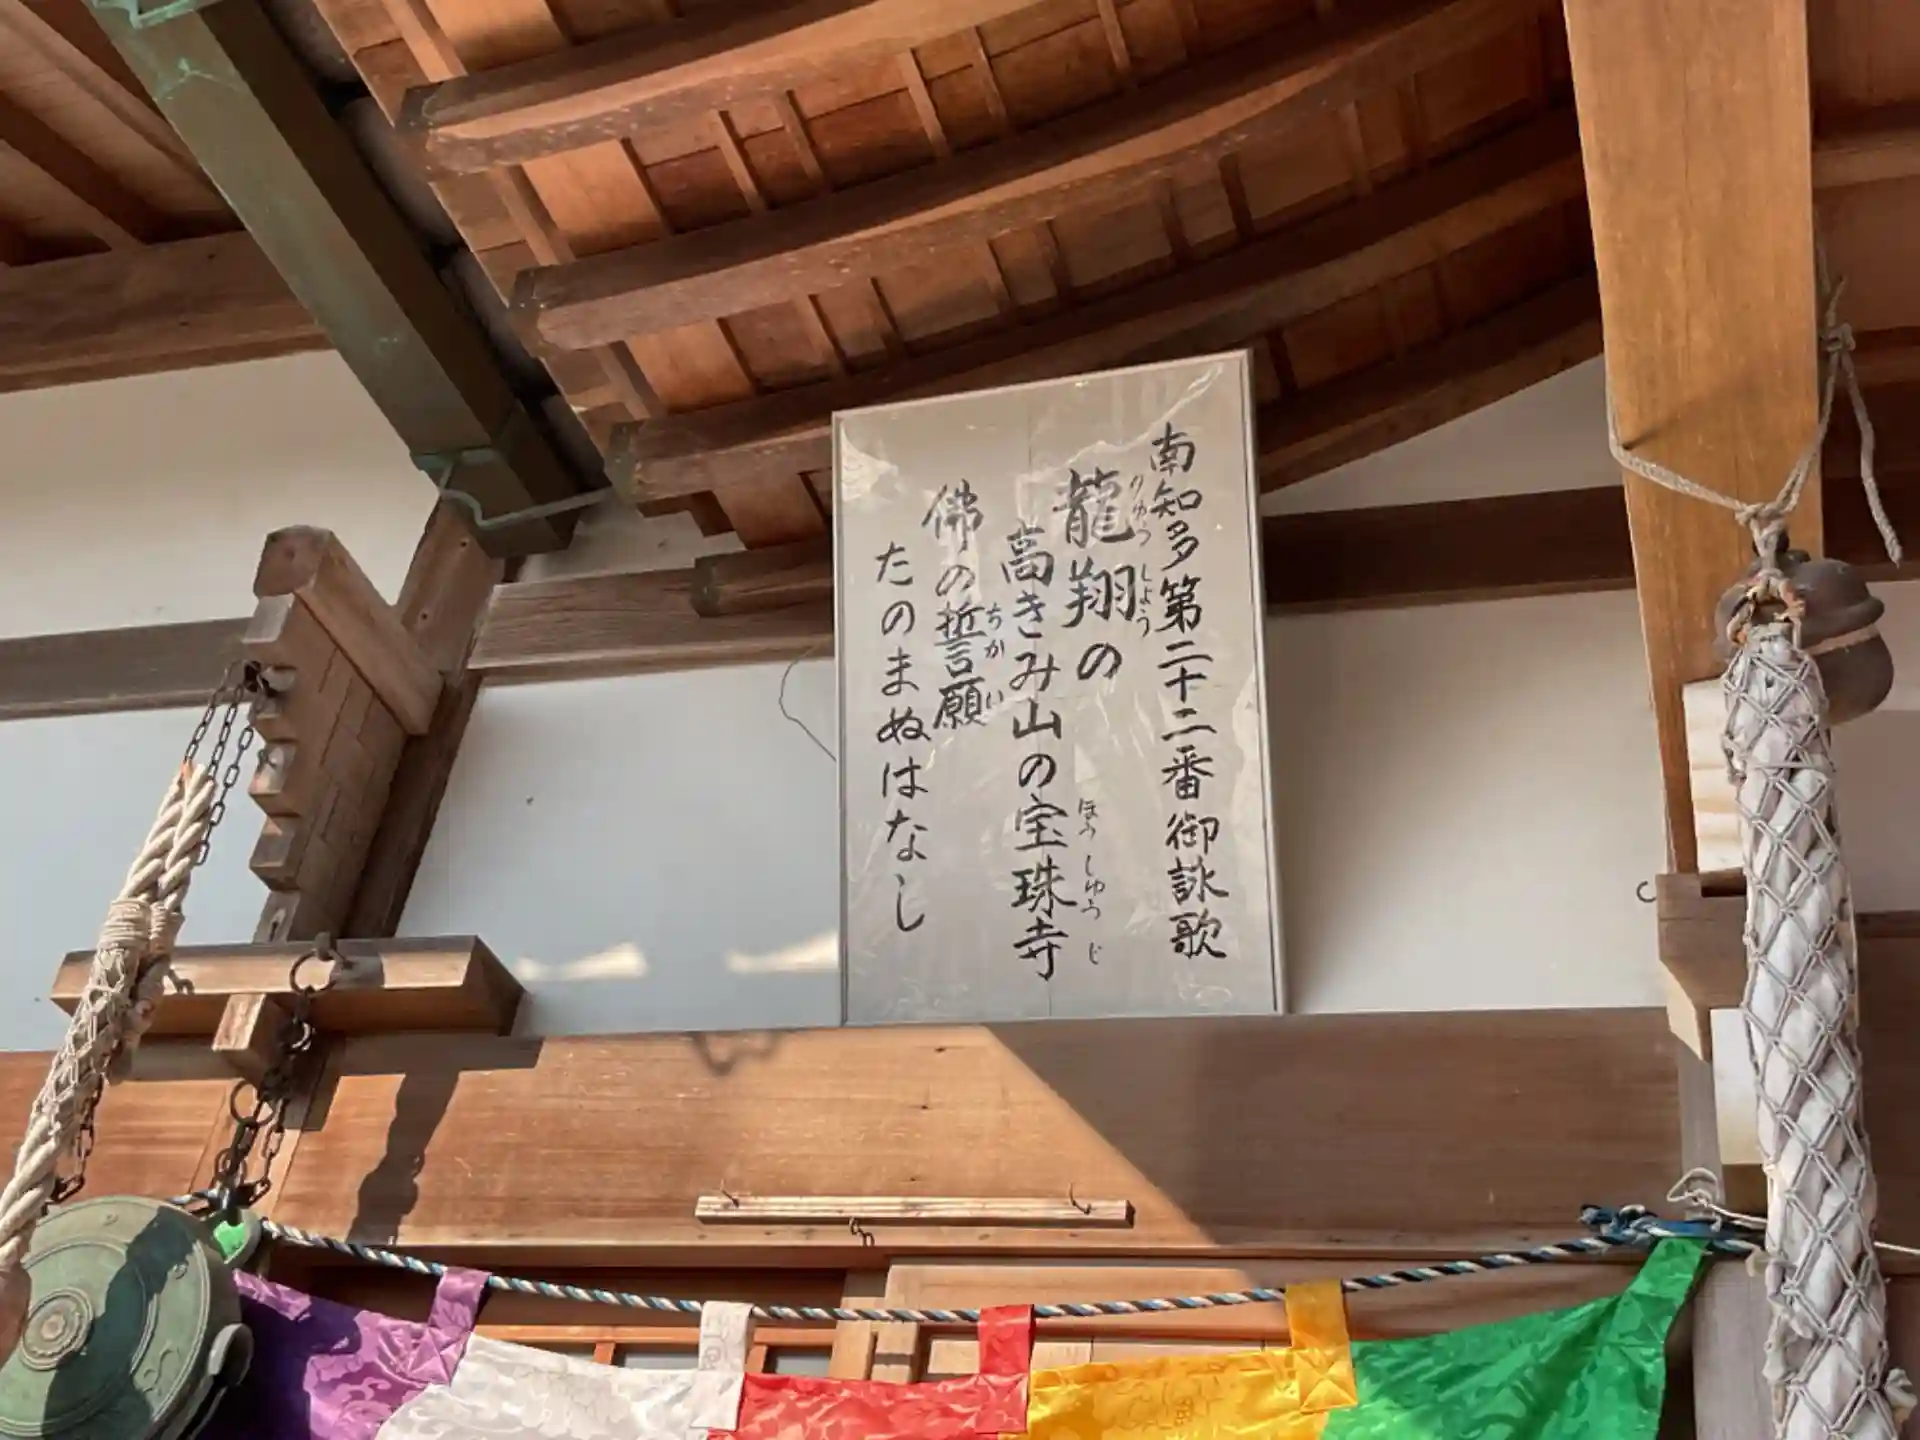 南知多第二十二番御詠歌
龍翔の
りゅうしょう
高きみ山の宝珠寺
ほうしゅうじ
佛の誓願
ちかい
たのまぬはなし